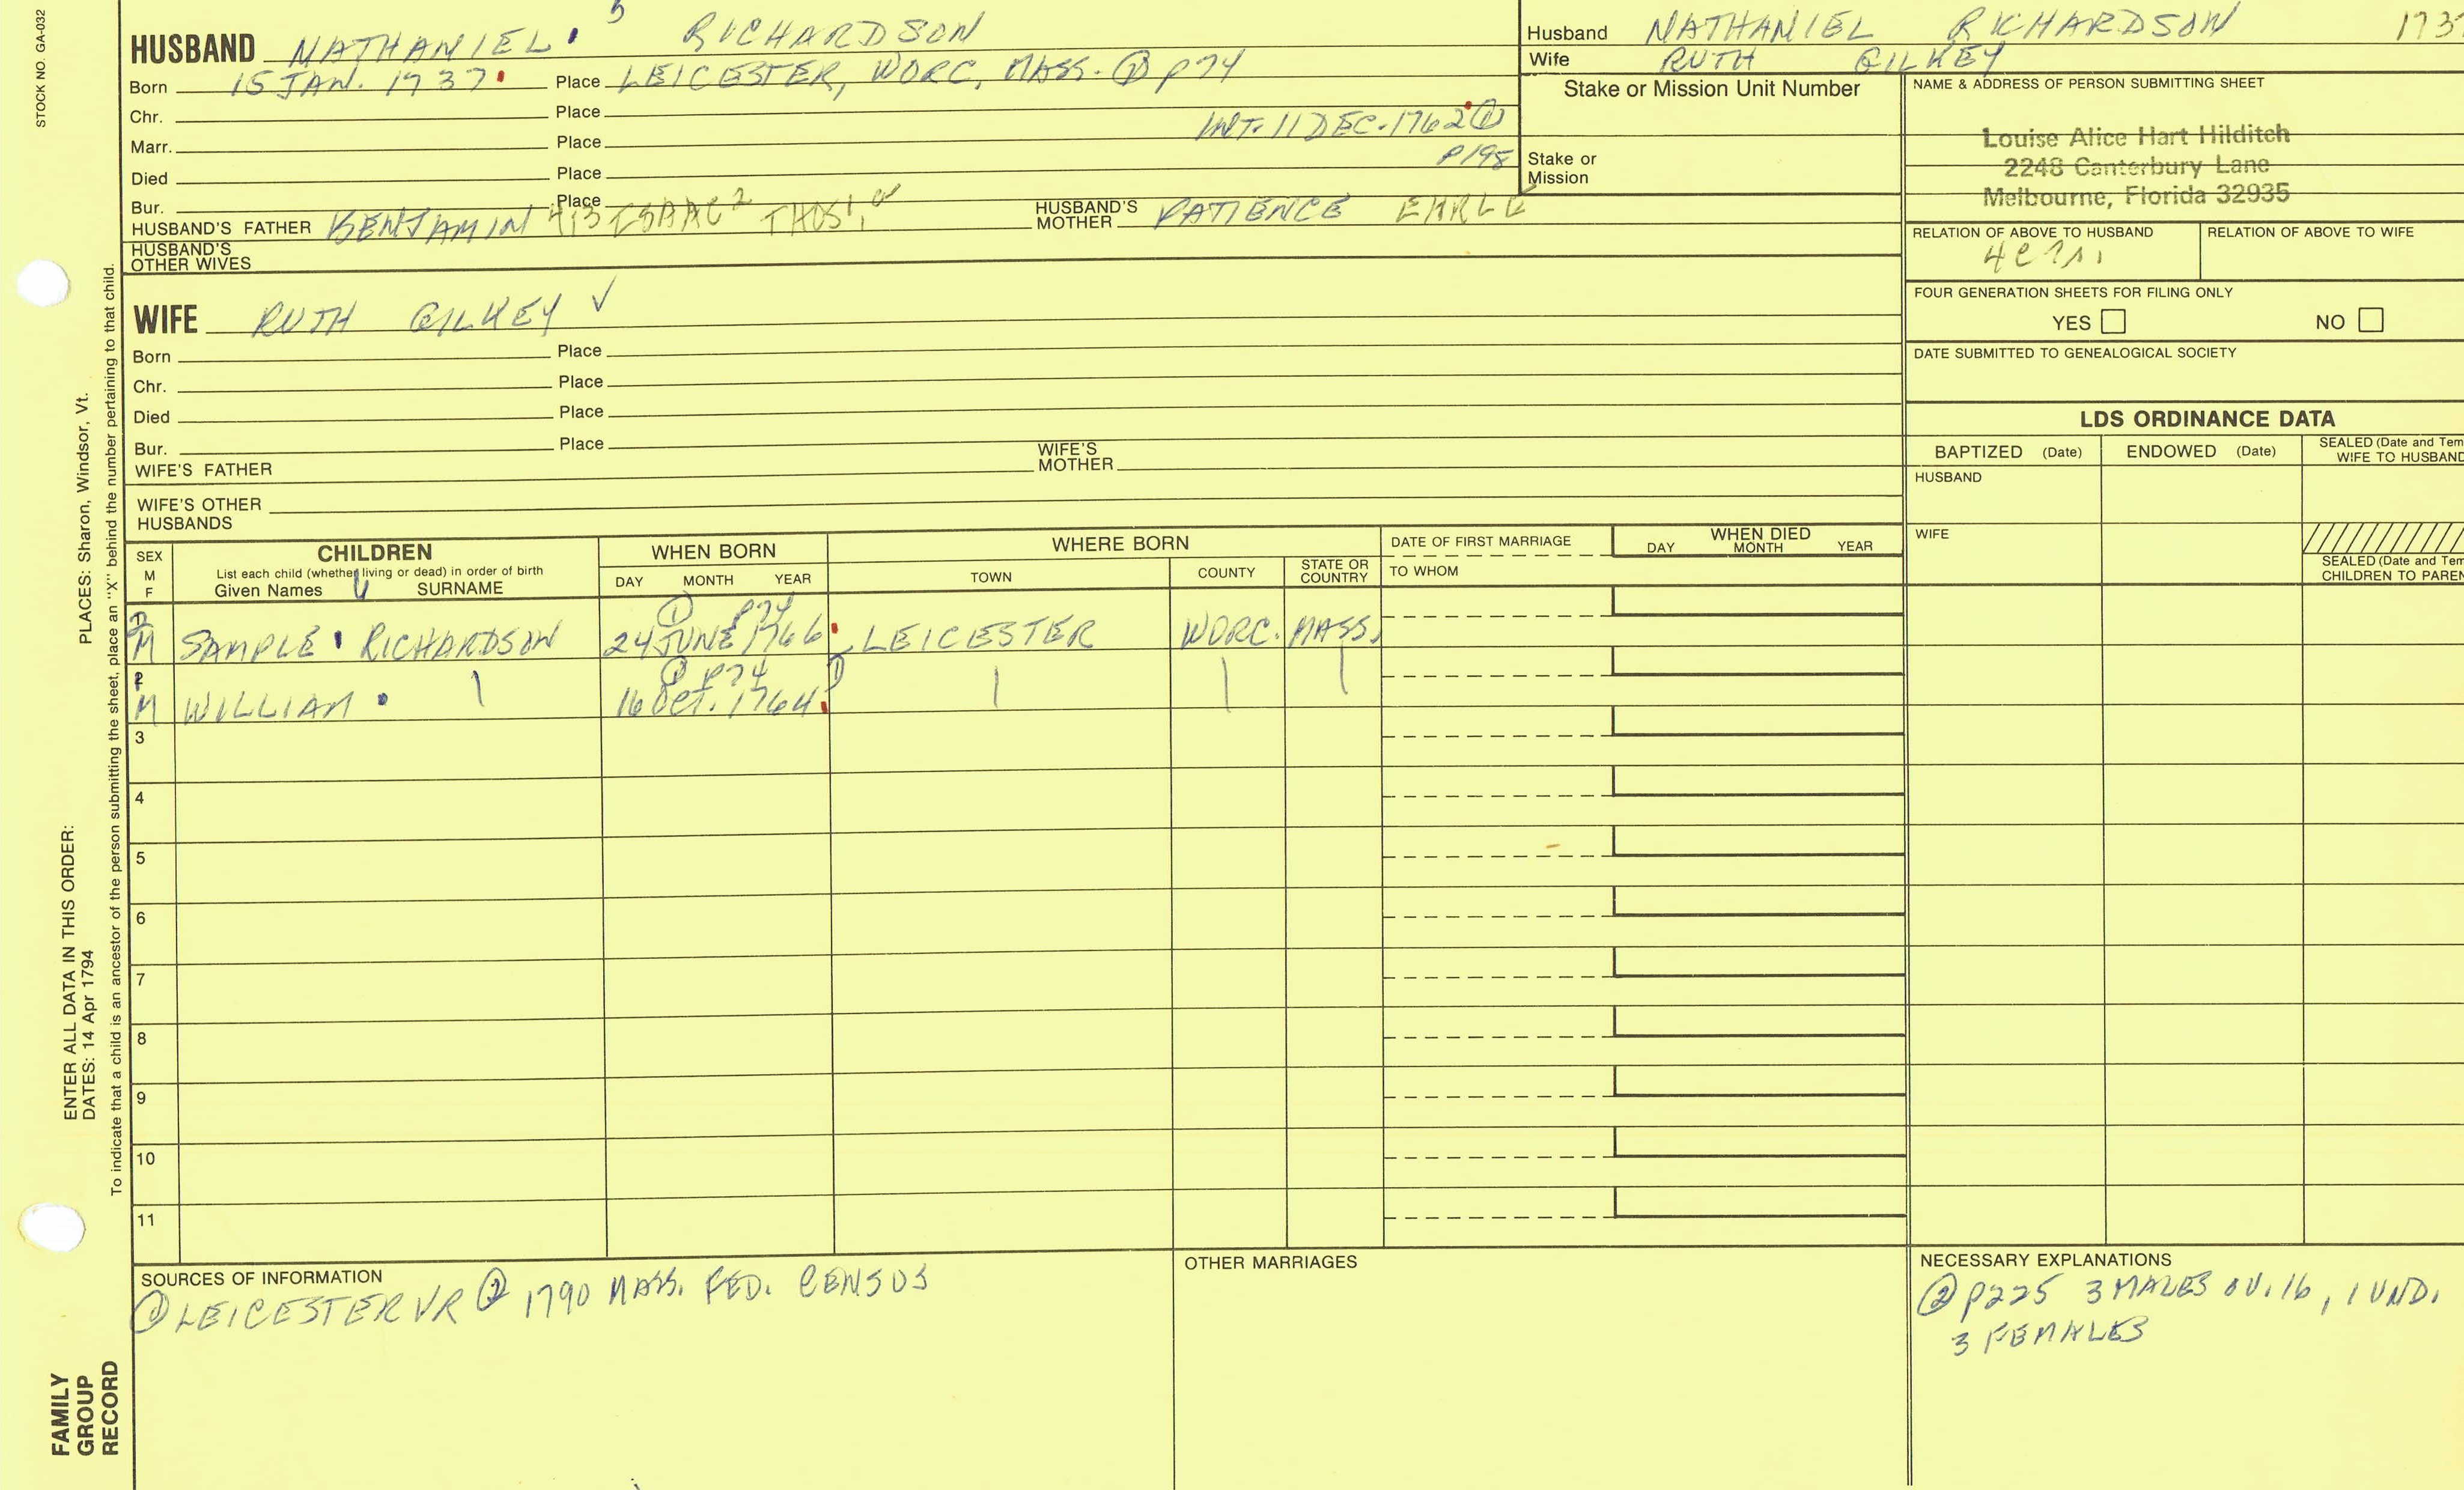 STOCK NO. GA-032
5
HUSBAND NATHANIEL RICHARDSON
Born 15 JAN. 1737 Place LEICESTER, WORC, MASS. ① p74
Chr. Place
INT. 11 DEC. 1762 ①
Marr. Place
p198
Died Place
Bur. Place
HUSBAND'S FATHER BENJAMIN 4,3 ISAAC2 THOS1, HUSBAND'S MOTHER PATIENCE EARLE
HUSBAND'S OTHER WIVES
Husband NATHANIEL RICHARDSON 173
Wife RUTH GILKEY
Stake or Mission Unit Number
Stake or
Mission
NAME & ADDRESS OF PERSON SUBMITTING SHEET
Louise Alice Hart Hilditch
2248 Canterbury Lane
Melbourne, Florida 32935
RELATION OF ABOVE TO HUSBAND RELATION OF ABOVE TO WIFE
FOUR GENERATION SHEETS FOR FILING ONLY
YES NO
DATE SUBMITTED TO GENEALOGICAL SOCIETY
WIFE RUTH GILKEY ✓
Born Place
Chr. Place
Died Place
Bur. Place
WIFE'S FATHER WIFE'S MOTHER
WIFE'S OTHER
HUSBANDS
LDS ORDINANCE DATA
BAPTIZED (Date) ENDOWED (Date) SEALED (Date and Tem
WIFE TO HUSBAND
HUSBAND
WIFE
SEALED (Date and Tem
CHILDREN TO PAREN
SEX
M
F
CHILDREN
List each child (whether living or dead) in order of birth
Given Names SURNAME
WHEN BORN
DAY MONTH YEAR
WHERE BORN
TOWN COUNTY STATE OR COUNTRY
DATE OF FIRST MARRIAGE
TO WHOM
WHEN DIED
DAY MONTH YEAR
① p74
M SAMPLE RICHARDSON 24 JUNE 1766 LEICESTER WORC. MASS.
① p74
M WILLIAM 16 OCT. 1764
3
4
5
6
7
8
9
10
11
SOURCES OF INFORMATION
① LEICESTER VR ② 1790 MASS. FED. CENSUS
OTHER MARRIAGES
NECESSARY EXPLANATIONS
② p225 3 MALES OV. 16, 1 UND.
3 FEMALES
PLACES: Sharon, Windsor, Vt.
ENTER ALL DATA IN THIS ORDER:
DATES: 14 Apr 1794
To indicate that a child is an ancestor of the person submitting the sheet, place an "X" behind the number pertaining to that child.
FAMILY
GROUP
RECORD